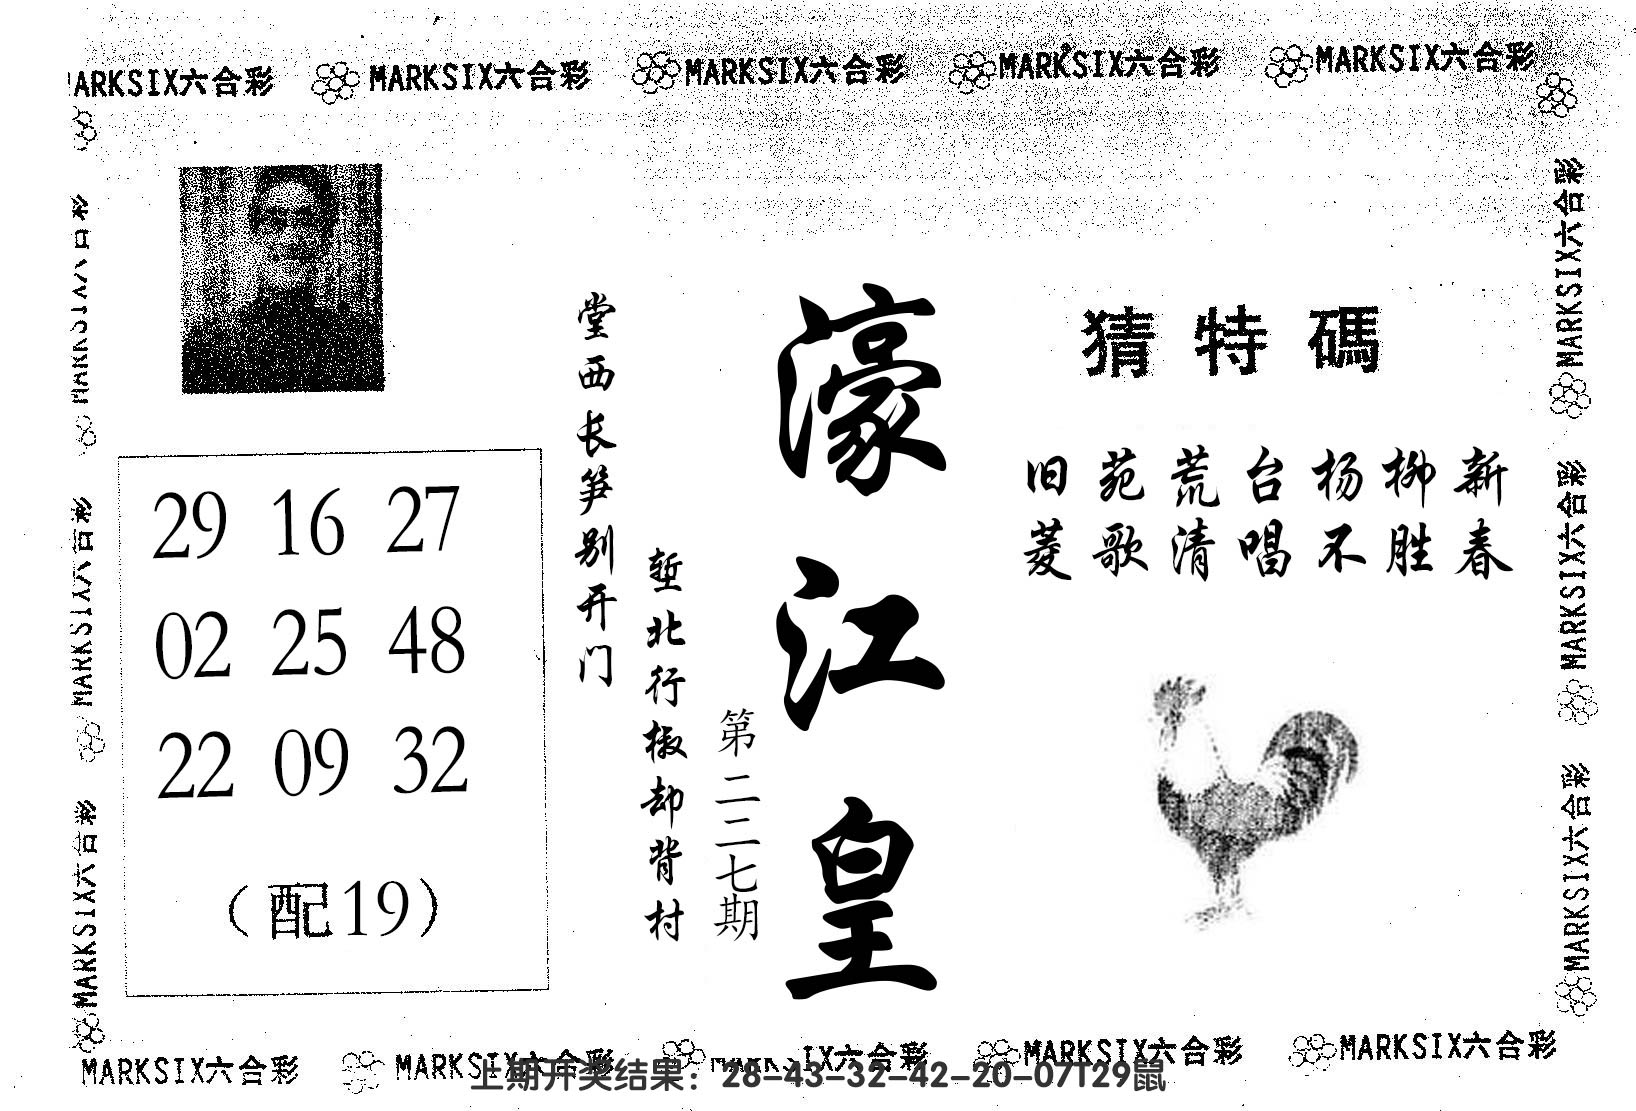 MARKSIX六合彩 MARKSIX六合彩 MARKSIX六合彩 MARKSIX六合彩 MARKSIX六合彩
MARKSIX六合彩
MARKSIX六合彩
MARKSIX六合彩
29 16 27
02 25 48
22 09 32
(配19)
堂西长笋别开门
堑北行椒却背村
第二二七期
濠江皇
猜特碼
旧苑荒台杨柳新
菱歌清唱不胜春
MARKSIX六合彩
MARKSIX六合彩
MARKSIX六合彩
MARKSIX六合彩 MARKSIX六合彩 MARKSIX六合彩 MARKSIX六合彩 MARKSIX六合彩
上期开奖结果：28-43-32-42-20-07T29鼠